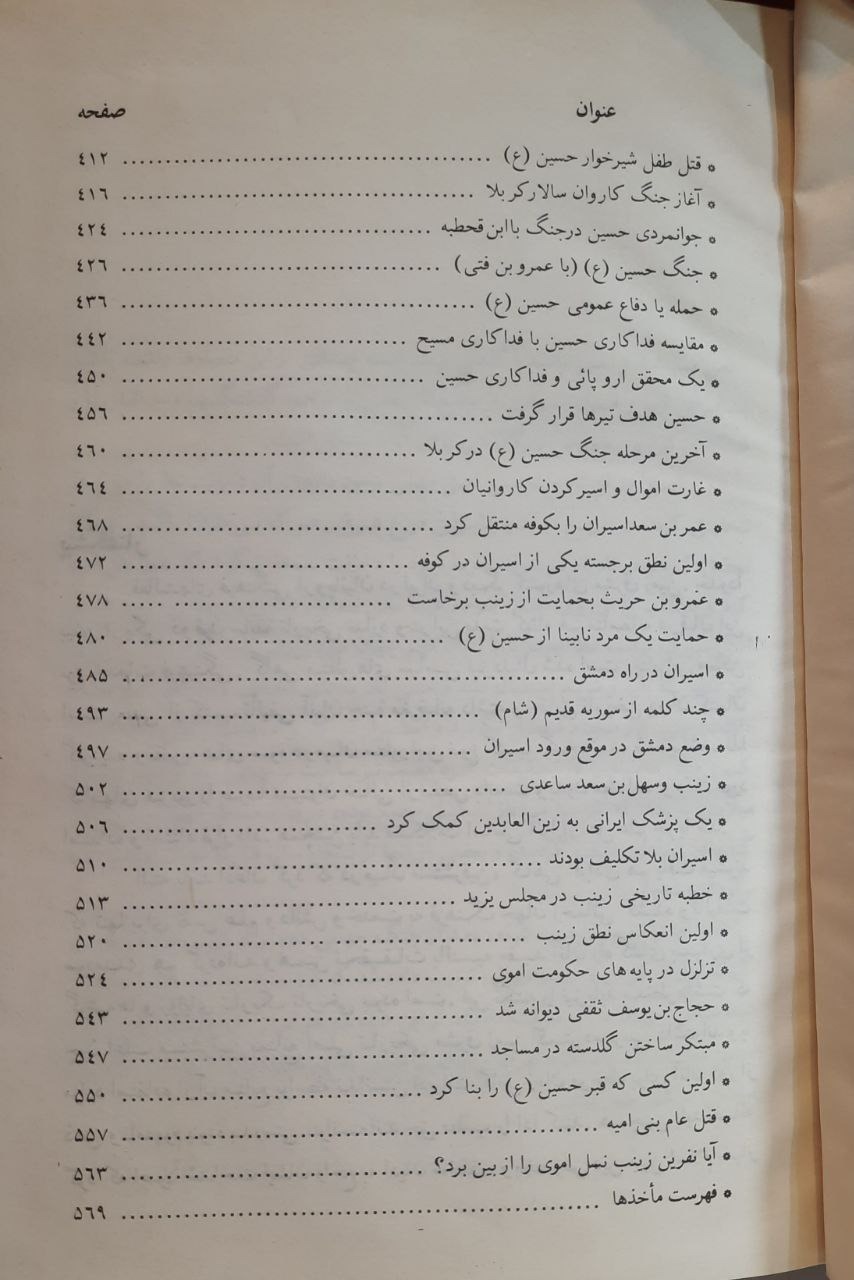 عنوان صفحه
* قتل طفل شیرخوار حسین (ع) ........................................ ٤١٢
* آغاز جنگ کاروان سالار کربلا ........................................ ٤١٦
* جوانمردی حسین درجنگ با ابن قحطبه ................................... ٤٢٤
* جنگ حسین (ع) (با عمرو بن فتی) ................................... ٤٢٦
* حمله یا دفاع عمومی حسین (ع) ........................................ ٤٣٦
* مقایسه فداکاری حسین با فداکاری مسیح ................................ ٤٤٢
* یک محقق ارو پائی و فداکاری حسین .................................. ٤٥٠
* حسین هدف تیرها قرار گرفت .......................................... ٤٥٦
* آخرین مرحله جنگ حسین (ع) درکربلا ................................. ٤٦٠
* غارت اموال و اسیرکردن کاروانیان ..................................... ٤٦٤
* عمر بن سعداسیران را بکوفه منتقل کرد ................................... ٤٦٨
* اولین نطق برجسته یکی از اسیران در کوفه ................................ ٤٧٢
* عمرو بن حریث بحمایت از زینب برخاست ........................ ..... ٤٧٨
* حمایت یک مرد نابینا از حسین (ع) ..................................... ٤٨٠
* اسیران در راه دمشق .................................................. ٤٨٥
* چند کلمه از سوریه قدیم (شام) ........................................ ٤٩٣
* وضع دمشق در موقع ورود اسیران ....................................... ٤٩٧
* زینب وسهل بن سعد ساعدی ........................................... ٥٠٢
* یک پزشک ایرانی به زین العابدین کمک کرد ............................ ٥٠٦
* اسیران بلا تکلیف بودند ............................................... ٥١٠
* خطبه تاریخی زینب در مجلس یزید ..................................... ٥١٣
* اولین انعکاس نطق زینب ..................... ....................... ٥٢٠
* تزلزل در پایه های حکومت اموی ........................................ ٥٢٤
* حجاج بن یوسف ثقفی دیوانه شد ........................................ ٥٤٣
* مبتکر ساختن گلدسته در مساجد ........................................ ٥٤٧
* اولین کسی که قبر حسین (ع) را بنا کرد ................................. ٥٥٠
* قتل عام بنی امیه ..................................................... ٥٥٧
* آیا نفرین زینب نسل اموی را از بین برد؟ ................................. ٥٦٣
* فهرست مأخذها ..................................................... ٥٦٩